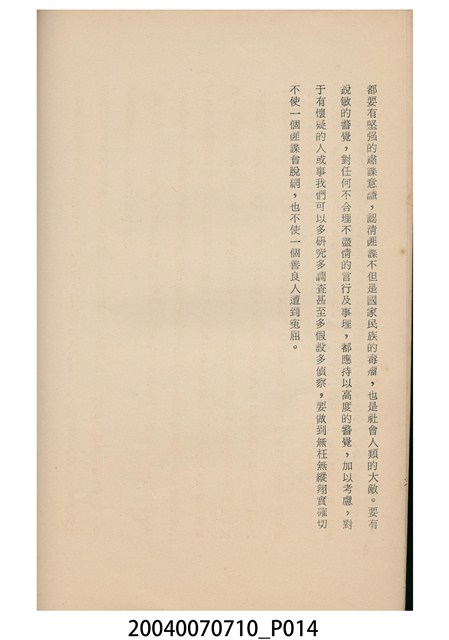 都要有堅强的肅諜意識，認清匪諜不但是國家民族的毒瘤，也是社會人類的大敵。要有
說敏的警覺，對任何不合理不盡情的言行及事理，都應持以高度的警覺，加以考慮，對
于有懷疑的人或事我們可以多研究多調査甚至多假設多偵察，要做到無枉無縱翔實確切
不使一個匪諜會脫網，也不使一個善良人遭到寃屈。
20040070710_P014